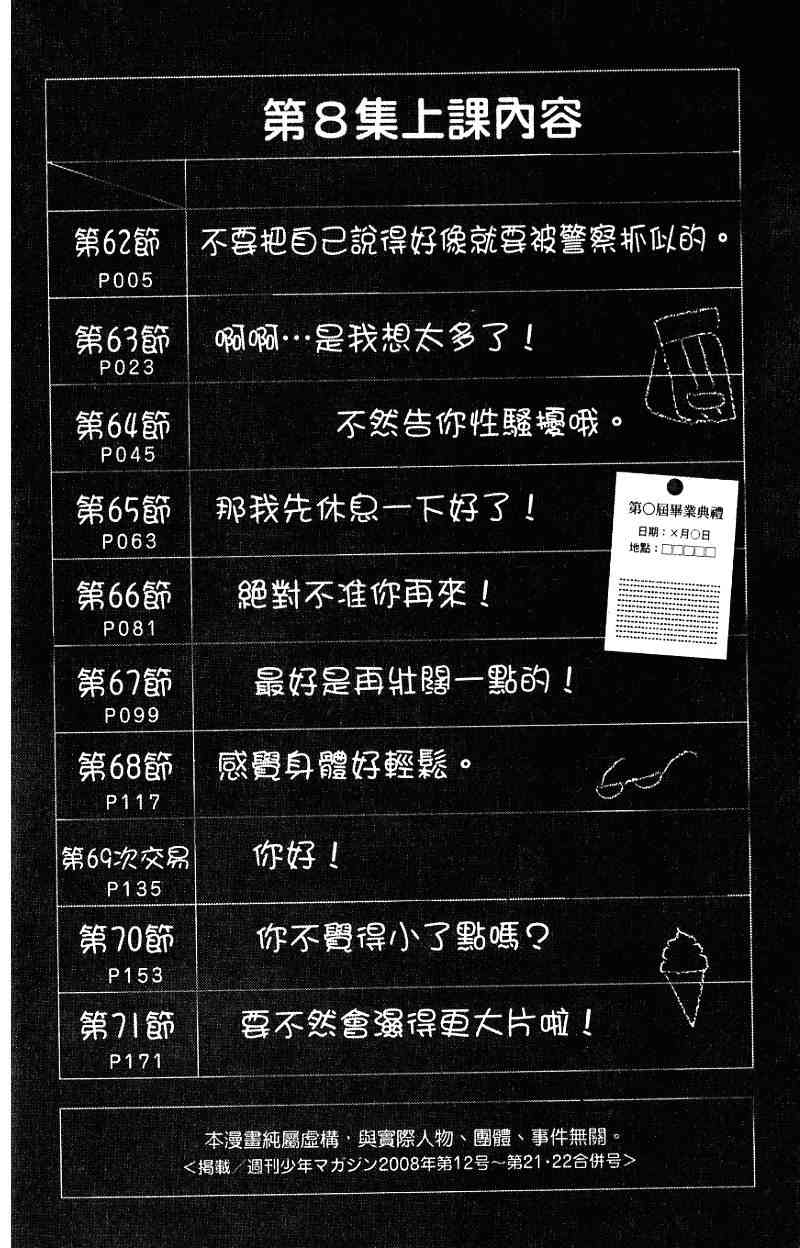 第8集上課內容
第62節
P005
不要把自己說得好像就要被警察抓似的。
第63節
P023
啊啊…是我想太多了！
第64節
P045
不然告你性騷擾哦。
第65節
P063
那我先休息一下好了！
第○屆畢業典禮
日期：×月○日
地點：□□□□□
第66節
P081
絕對不准你再來！
第67節
P099
最好是再壯闊一點的！
第68節
P117
感覺身體好輕鬆。
第69次交易
P135
你好！
第70節
P153
你不覺得小了點嗎？
第71節
P171
要不然會濕得更大片啦！
本漫畫純屬虛構，與實際人物、團體、事件無關。
＜掲載／週刊少年マガジン2008年第12号～第21・22合併号＞